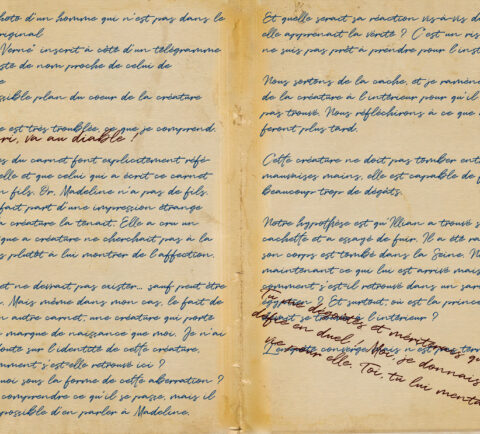 hoto d'un homme qui n'est pas dans le
original
Verne" inscrit à côté d'un télégramme
iste de nom proche de celui de
e
ssible plan du coeur de la créature
e est très troublée, ce que je comprend.
ri, va au diable !
es du carnet font explicitement réfé-
elle et que celui qui a écrit ce carnet
n fils. Or, Madeline n'a pas de fils.
fait part d'une impression étrange
a créature la tenait. Elle a cru un
que a créature ne cherchait pas à la
s plutôt à lui montrer de l'affection.
et ne devrait pas exister... sauf peut être
. Mais même dans mon cas, le fait de
n autre carnet, une créature qui porte
marque de naissance que moi. Je n'ai
doute sur l'identité de cette créature,
mment s'est-elle retrouvé ici ?
uoi sous la forme de cette aberration ?
comprendre ce qu'il se passe, mais il
possible d'en parler à Madeline.
Et quelle serait sa réaction vis-à-vis d
elle apprenait la vérité ? C'est un ris
ne suis pas prêt à prendre pour l'inst
Nous sortons de la cache, et je ramène
de la créature à l'intérieur pour qu'il
pas trouvé. Nous réfléchirons à ce que
feront plus tard.
Cette créature ne doit pas tomber ent
mauvaises mains, elle est capable de f
beaucoup trop de dégâts.
Notre hypothèse est qu'Illian a trouvé s
cachette et a essayé de fuir. Il a été ra
son corps est tombé dans la Seine. N
maintenant ce qui lui est arrivé mais
comment s'est-il retrouvé dans un sar
égyptien ? Et surtout, où est la prince
Tu me dégoûtes et mériterais q
défie en duel ! Moi, je donnais
vie pour elle. Toi, tu lui menta